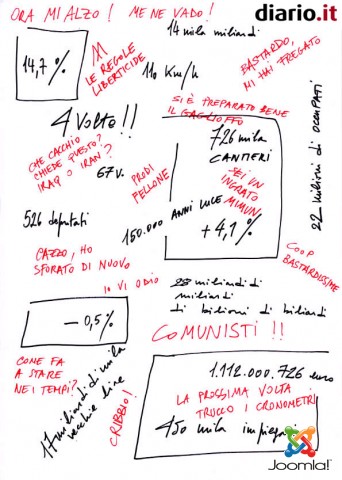 ORA MI ALZO! ME NE VADO!
diario.it
14,7%
M
LE REGOLE
LIBERTICIDE
14 mila miliardi
110 Km/h
BASTARDO,
MI HAI FREGATO
4 Volte!!
SI È PREPARATO BENE
IL GAGLIOFFO
CHE CACCHIO
CHIEDE QUESTO?
IRAQ O IRAN?
67 V.
PRODI
FELLONE
726 mila
CANTIERI
SEI UN
INGRATO
MIMUN
+4,1%
22 milioni di OCCUPATI
526 deputati
150.000 ANNI LUCE
CAZZO, HO
SFORATO DI NUOVO
IO VI ODIO
COOP
BASTARDISSIME
28 miliardi di
miliardi
di bilioni di biliardi
-0,5%
COMUNISTI!!
COME FA
A STARE
NEI TEMPI?
17 miliardi di mila
vecchie lire
CRIBBIO!
1.112.000.726 euro
LA PROSSIMA VOLTA
TRUCCO I CRONOMETRI
450 mila
Joomla!